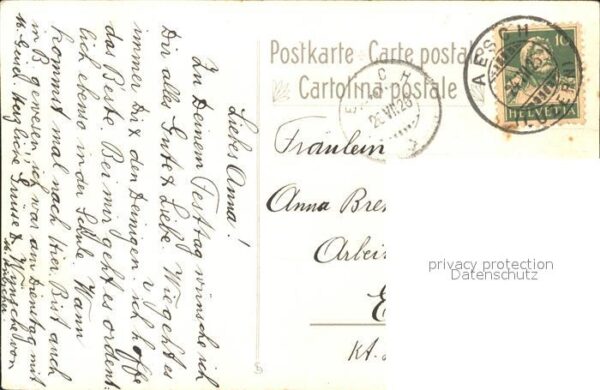 Postkarte. Carte postale
Cartolina postale
AESCH
26.VII.25
10
HELVETIA
Fräulein
Anna Bre
Arbei
E
Kt.
privacy protection
Datenschutz
Liebes Anna!
Zu Deinem Festtag wünsche ich
Dir alles Gute & Liebe. Wie geht es
immer Dir & den Deinigen, ich hoffe
das Beste. Bei mir geht es ordent-
lich ebenso in der Schule. Wann
kommst mal nach hier. Bist auch
in B. gewesen, ich war am Dienstag mit
herzliche Grüsse & Wünsche von